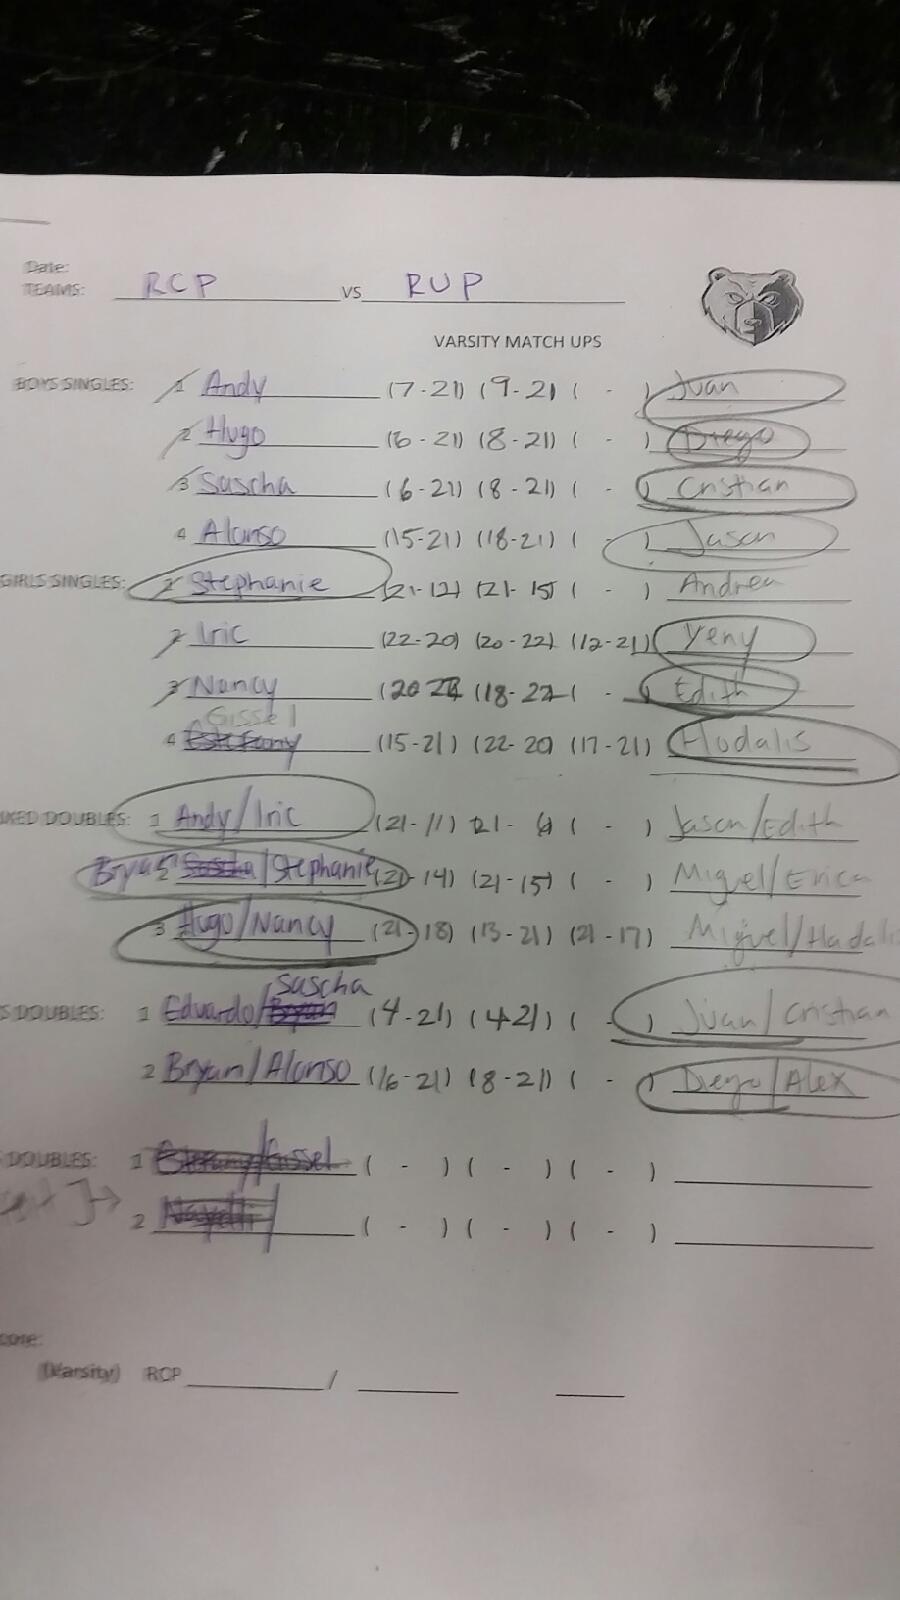 Date:
TEAMS: RCP vs RUP
VARSITY MATCH UPS
BOYS SINGLES: 1 Andy (7-21) (9-21) ( - ) Juan
2 Hugo (6-21) (8-21) ( - ) Diego
3 Sascha (6-21) (8-21) ( - ) Cristian
4 Alonso (15-21) (18-21) ( - ) Jason
GIRLS SINGLES: 1 Stephanie (21-12) (21-15) ( - ) Andrea
2 Iric (22-20) (20-22) (12-21) Yeny
3 Nancy (20 (18-22 ( - ) Edith
Gissel
4 (15-21) (22-20) (17-21) Hodalis
XED DOUBLES: 1 Andy/Iric (21-11) 21- ( - ) Jason/Edith
Bryan 2 /Stephanie (21-14) (21-15) ( - ) Miguel/Erica
3 Hugo/Nancy (21-18) (13-21) (21-17) Miguel/Hadalis
Sascha
S DOUBLES: 1 Eduardo/Bryan (4-21) (4-21) ( - ) Juan/Cristian
2 Bryan/Alonso (16-21) (8-21) ( - ) Diego/Alex
DOUBLES: 1 /Gissel ( - ) ( - ) ( - )
2 Nayelli/ ( - ) ( - ) ( - )
core:
(Varsity) RCP /